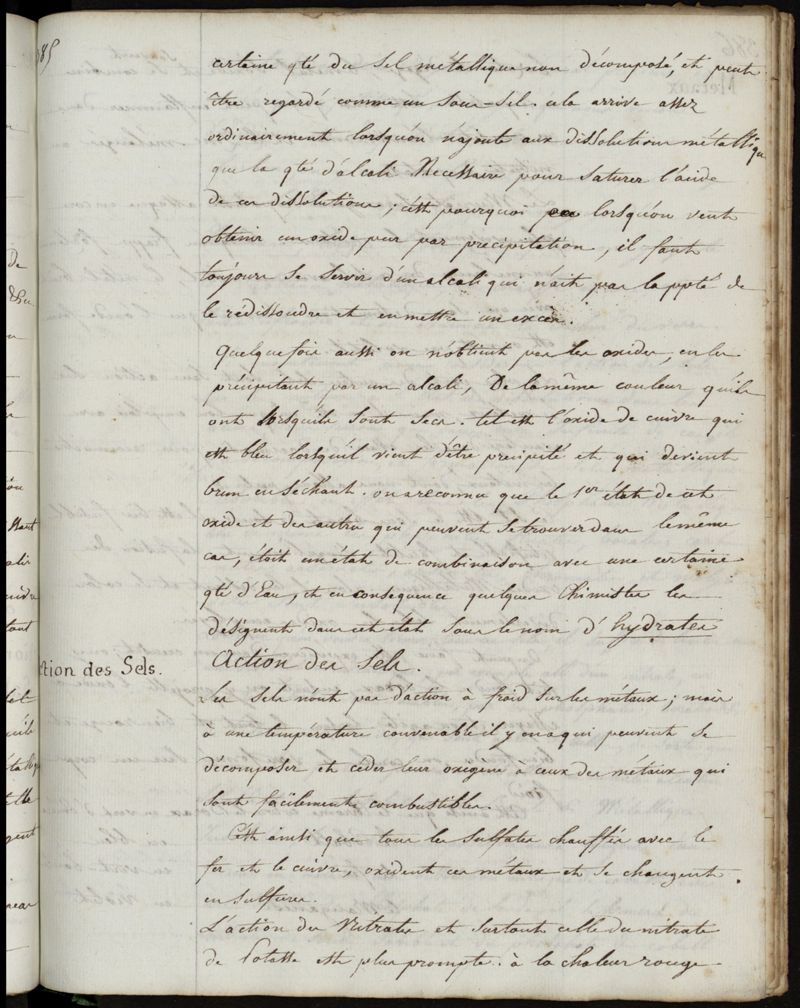 385
certaine qté du sel métallique non décomposé, et peut
être regardé comme un sous-sel. cela arrive assez
ordinairement lorsqu'on n'ajoute aux dissolutions métalliqu
que la qté d'alcali Necessaire pour saturer l'acide
de ces dissolutions ; c'est pourquoi lorsqu'on veut
obtenir un oxide pur par precipitation, il faut
toujours se servir d'un alcali qui n'ait pas la ppté de
le rédissoudre et en mettre un excès.
Quelquefois aussi on n'obtient pas les oxides, en les
précipitant par un alcali, De la même couleur qu'ils
ont lorsqu'ils sont secs. tel est l'oxide de cuivre qui
est bleu lorsqu'il vient d'être precipité et qui devient
brun en séchant. on a reconnu que le 1er état de cet
oxide et des autres qui peuvent se trouver dans le même
cas, étoit un état de combinaison avec une certaine
qté d'Eau, et en consequence quelques Chimistes les
désignent dans cet état sous le nom d'hydrates
ction des Sels.
Action des Sels.
Les Sels n'ont pas d'action à froid sur les métaux ; mais
à une température convenable il y en a qui peuvent se
décomposer et céder leur oxigène à ceux des métaux qui
sont facilement combustibles.
C'est ainsi que tous les sulfates chauffés avec le
fer et le cuivre, oxident ces métaux et se changent
en sulfures.
L'action des Nitrates et surtout celle du nitrate
de Potasse est plus prompte. à la chaleur rouge